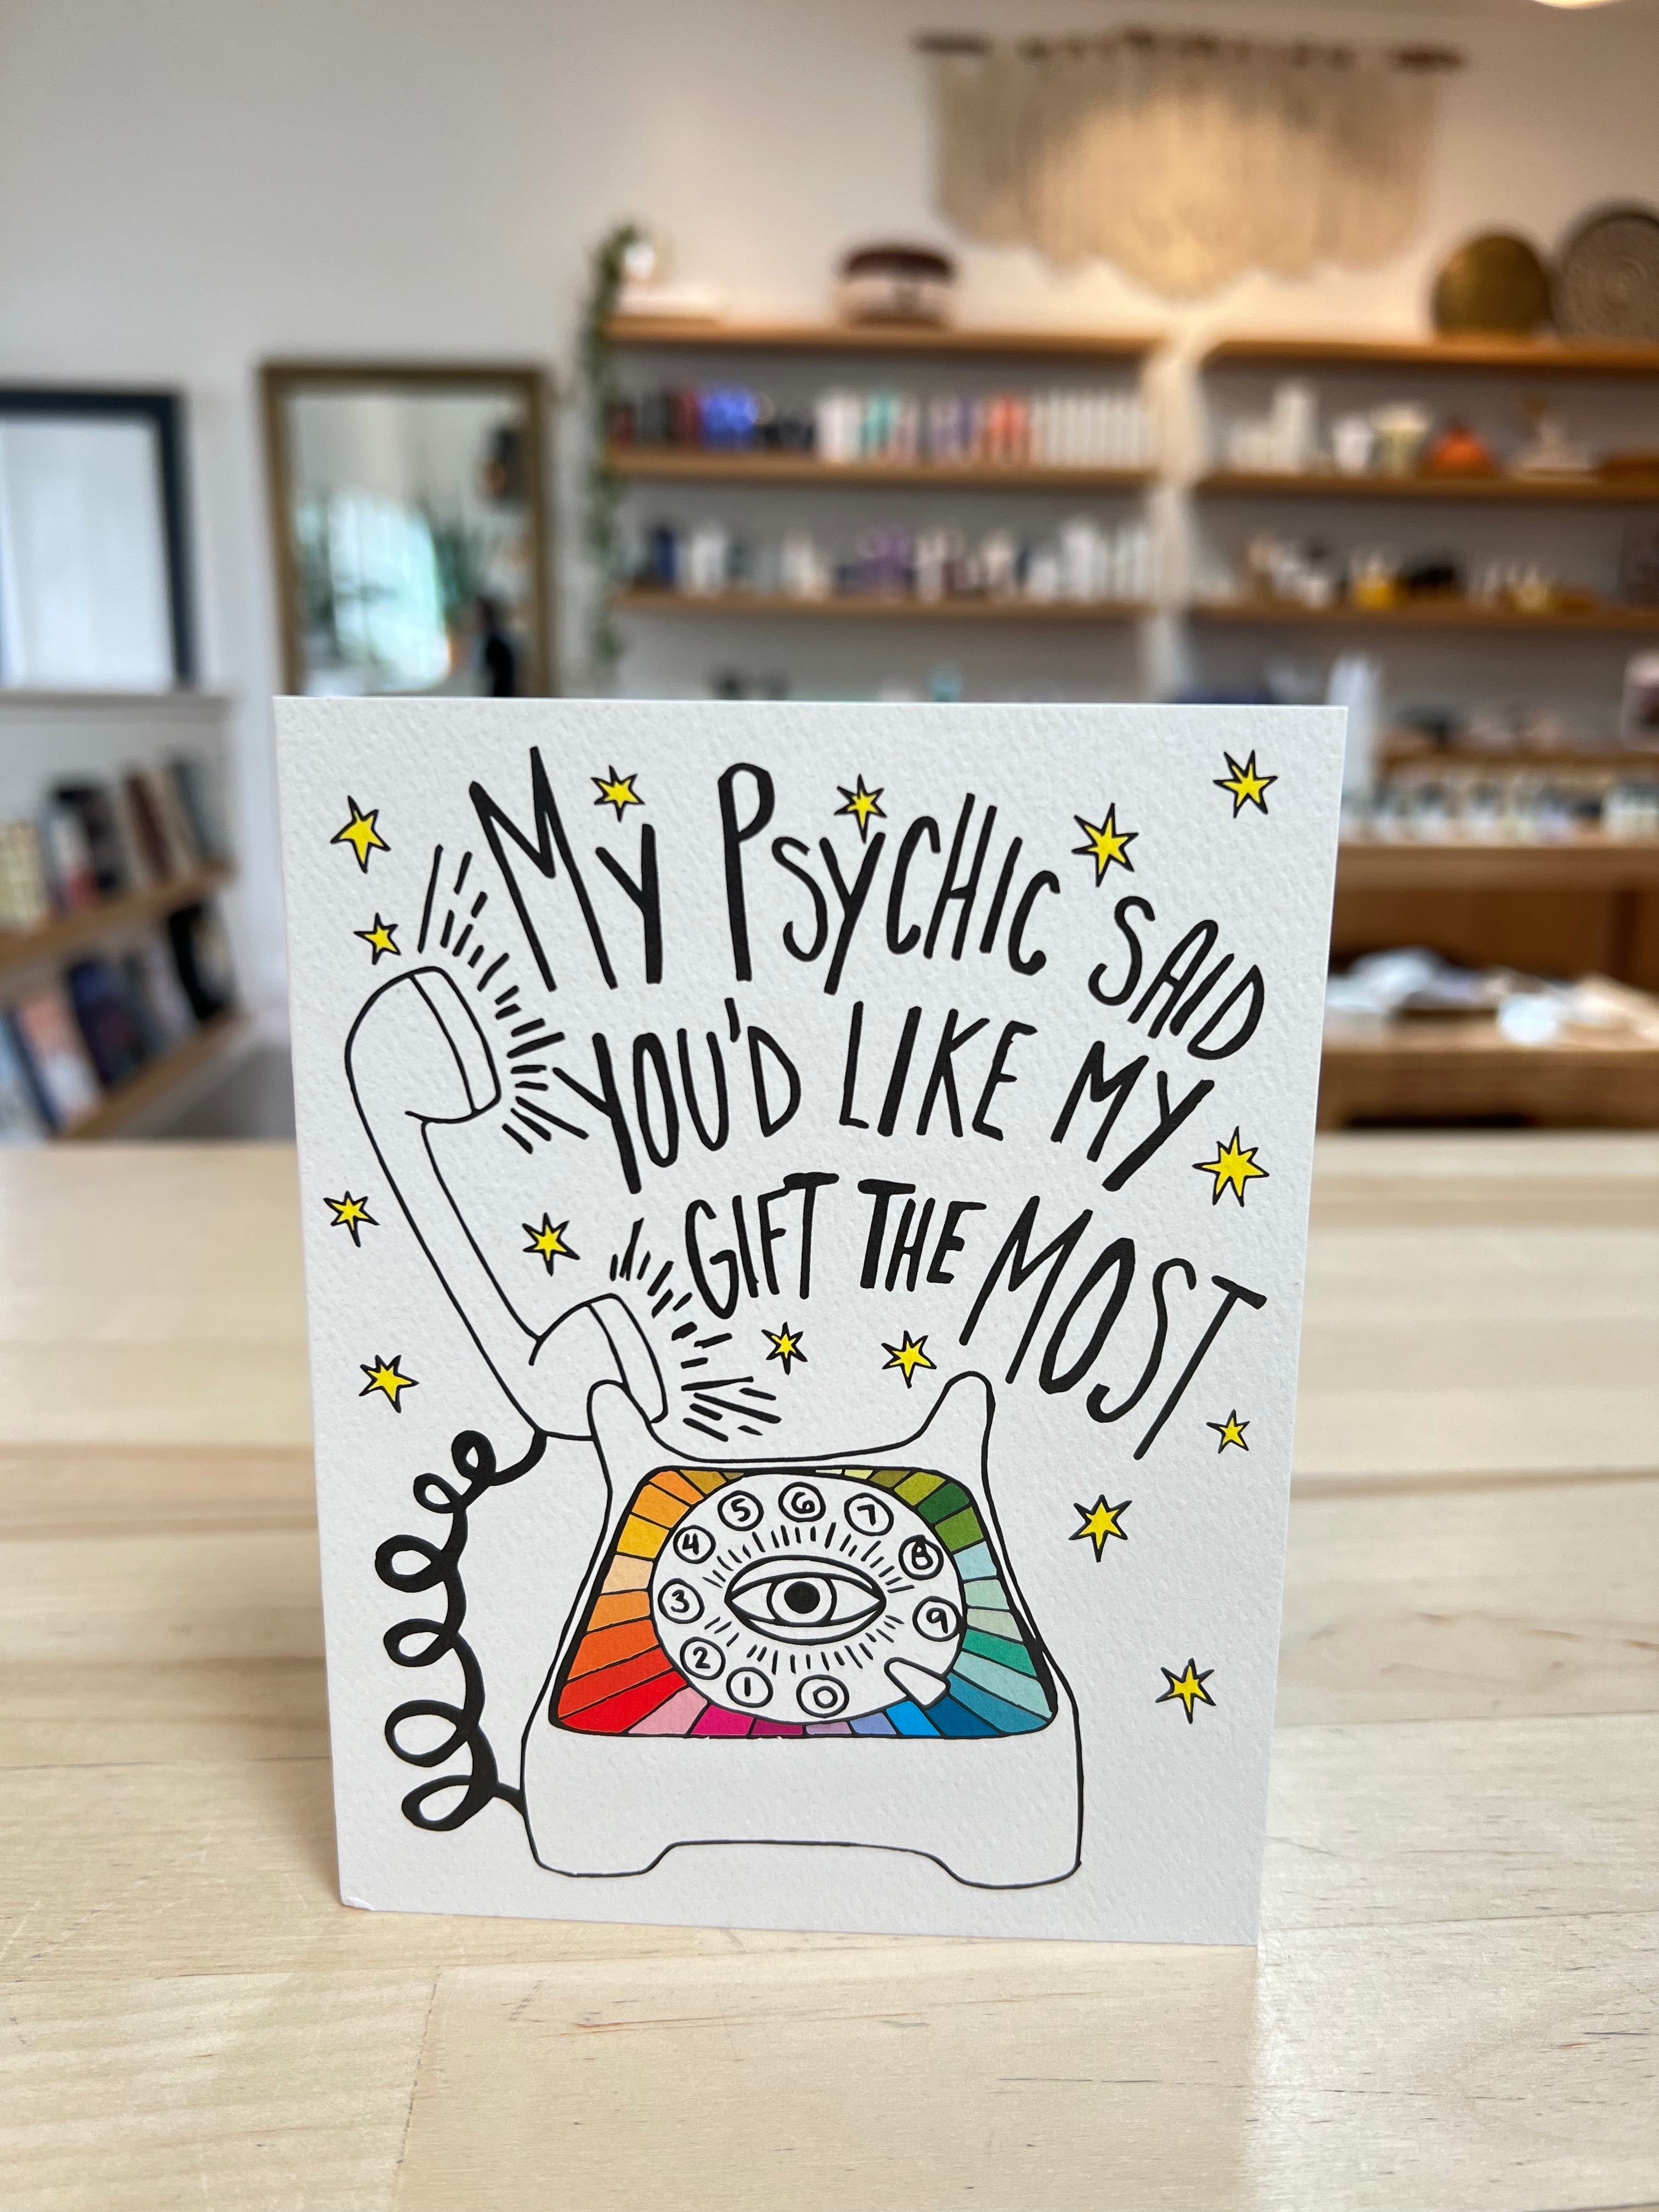 My Psychic SAID
YOU'D LIKE MY
GIFT THE MOST
5 6 7
4 8
3 9
2
1 0